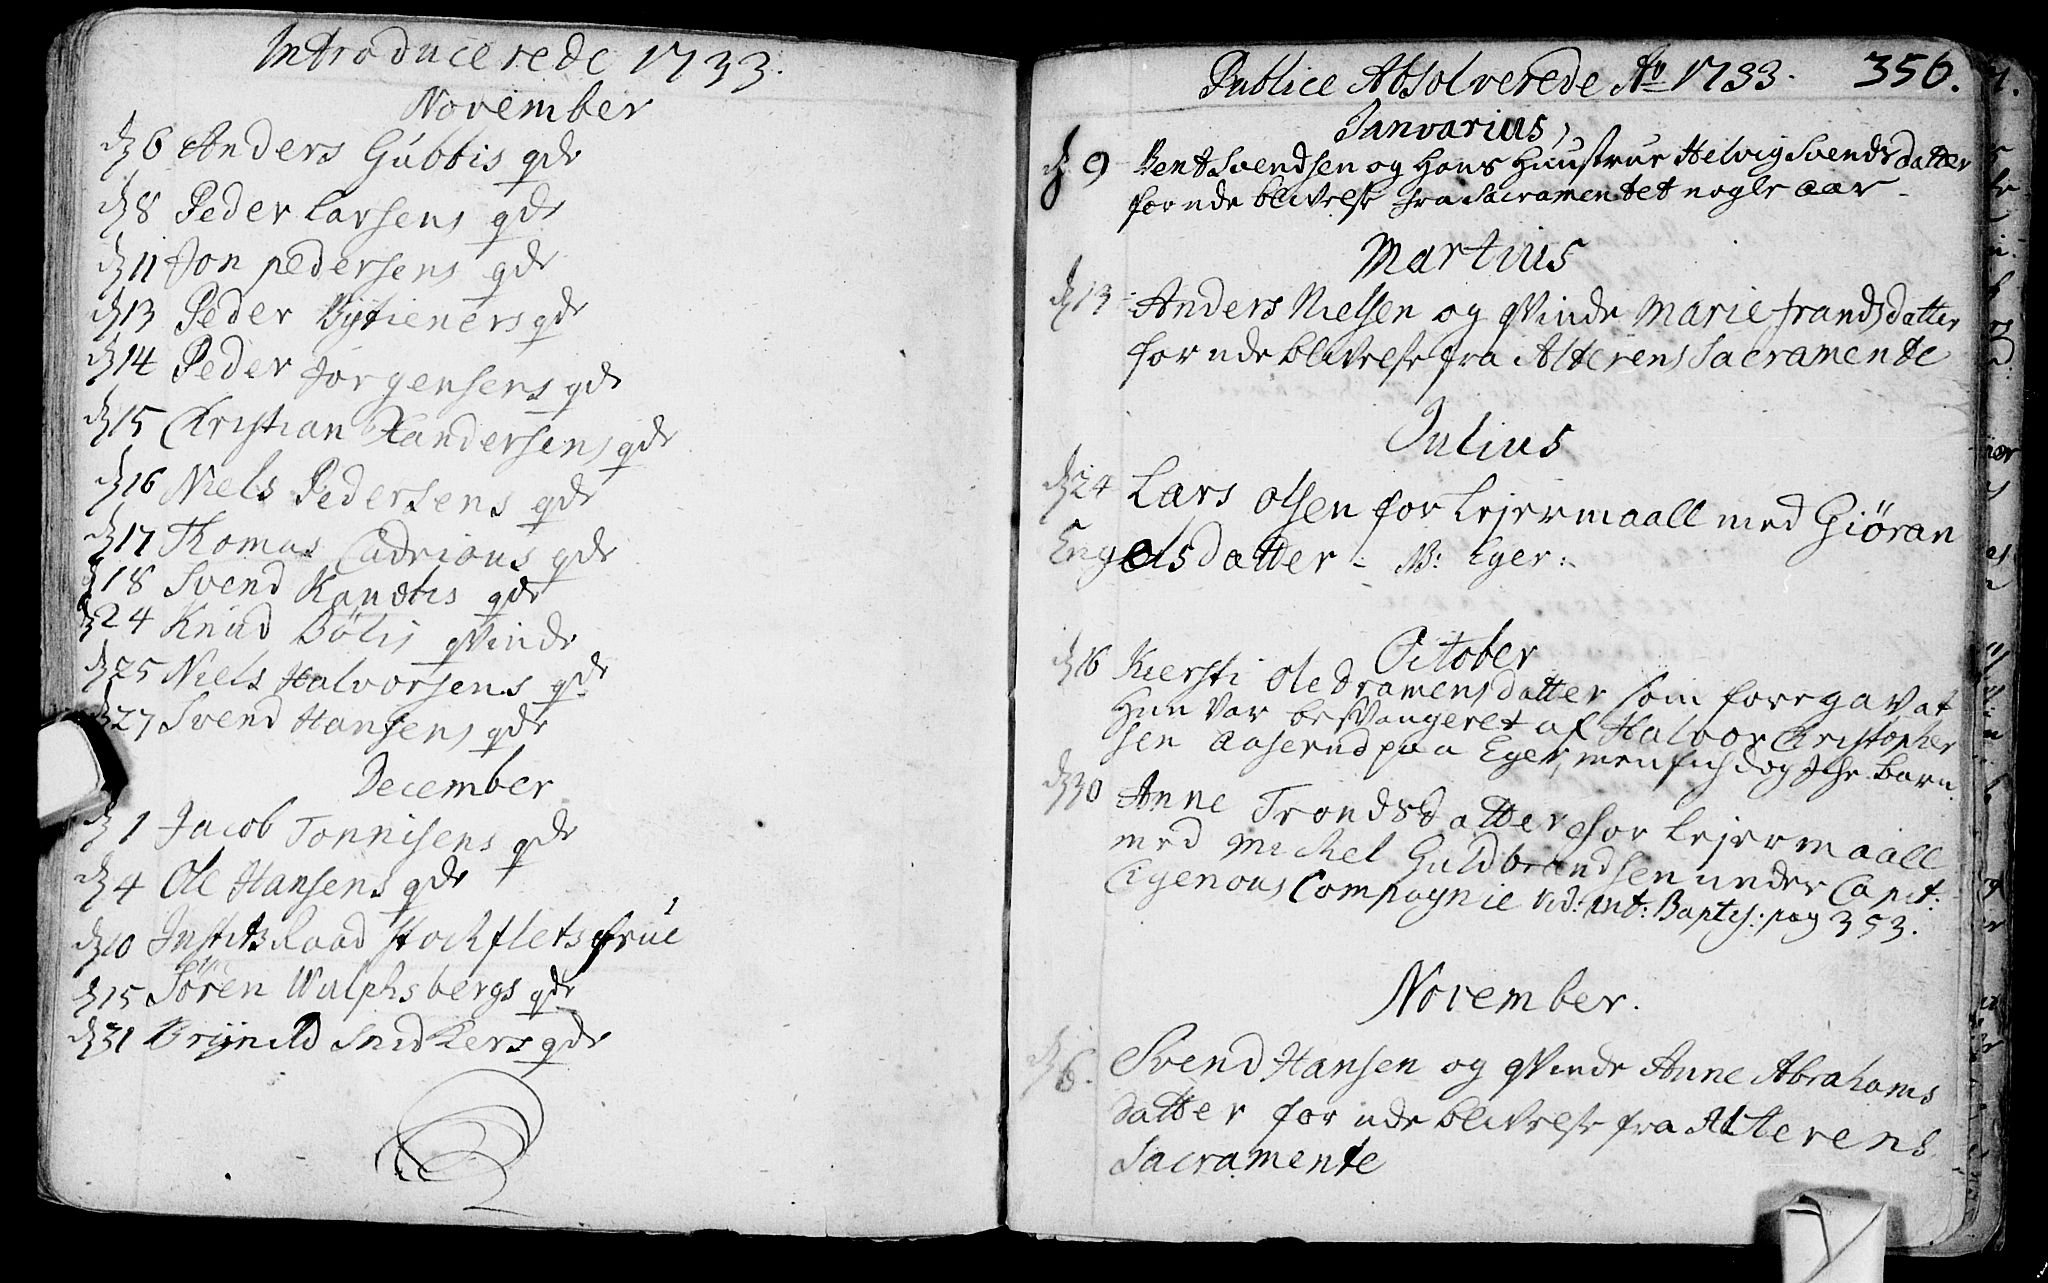 Introducerede 1733.
November
d 6 Anders Gubbis qde
d 8 Peder Larsens qde
d 11 Jon pedersens qde
d 13 Peder Bytieners qde
d 14 Peder Jorgensens qde
d 15 Christian Xandersens qde
d 16 Niels Pedersens qde
d 17 Thomas qde
18 Svend qde
24 Knud Bölis qVinde
d 25 Niels Halvorsens qde
27 Svend Hansens qde
December
d 1 Jacob Tonnisens qde
d 4 Ole Hansens qde
d 10 Raad Stochflets frue
d 15 Sören Wulphsbergs qde
d 31 Brynild Snidkers qde
Publice Absolverede Ao 1733. 356.
Januarius,
d 9 Bent Svendsen og Hans Huustrue Helvig Svends datter
for udeblivelse fra Sacramentet nogle aar
Martius
d 13 Anders Nielsen og qVinde Marie frandsdatter
for udeblivelse fra Alterens Sacramente
Julius
d 24 Lars Olsen for Lejermaall med Giöran
Engelsdatter - NB: Eger:
October
d 16 Kiersti Ole Dramens datter som foregav at
Hun var besvangeret af Halvor Christopher
sen Aaserud paa Eger, men fich dog Iche Barn.
d 30 Anne Trondsdatter for Lejermaall
med Michel Guldbrandsen under Capit:
Compagnie vid: int: Baptis: pag 353.
November.
d 6. Svend Hansen og qVinde Anne Abrahams
datter for udeblivelse fra Alterens
Sacramente